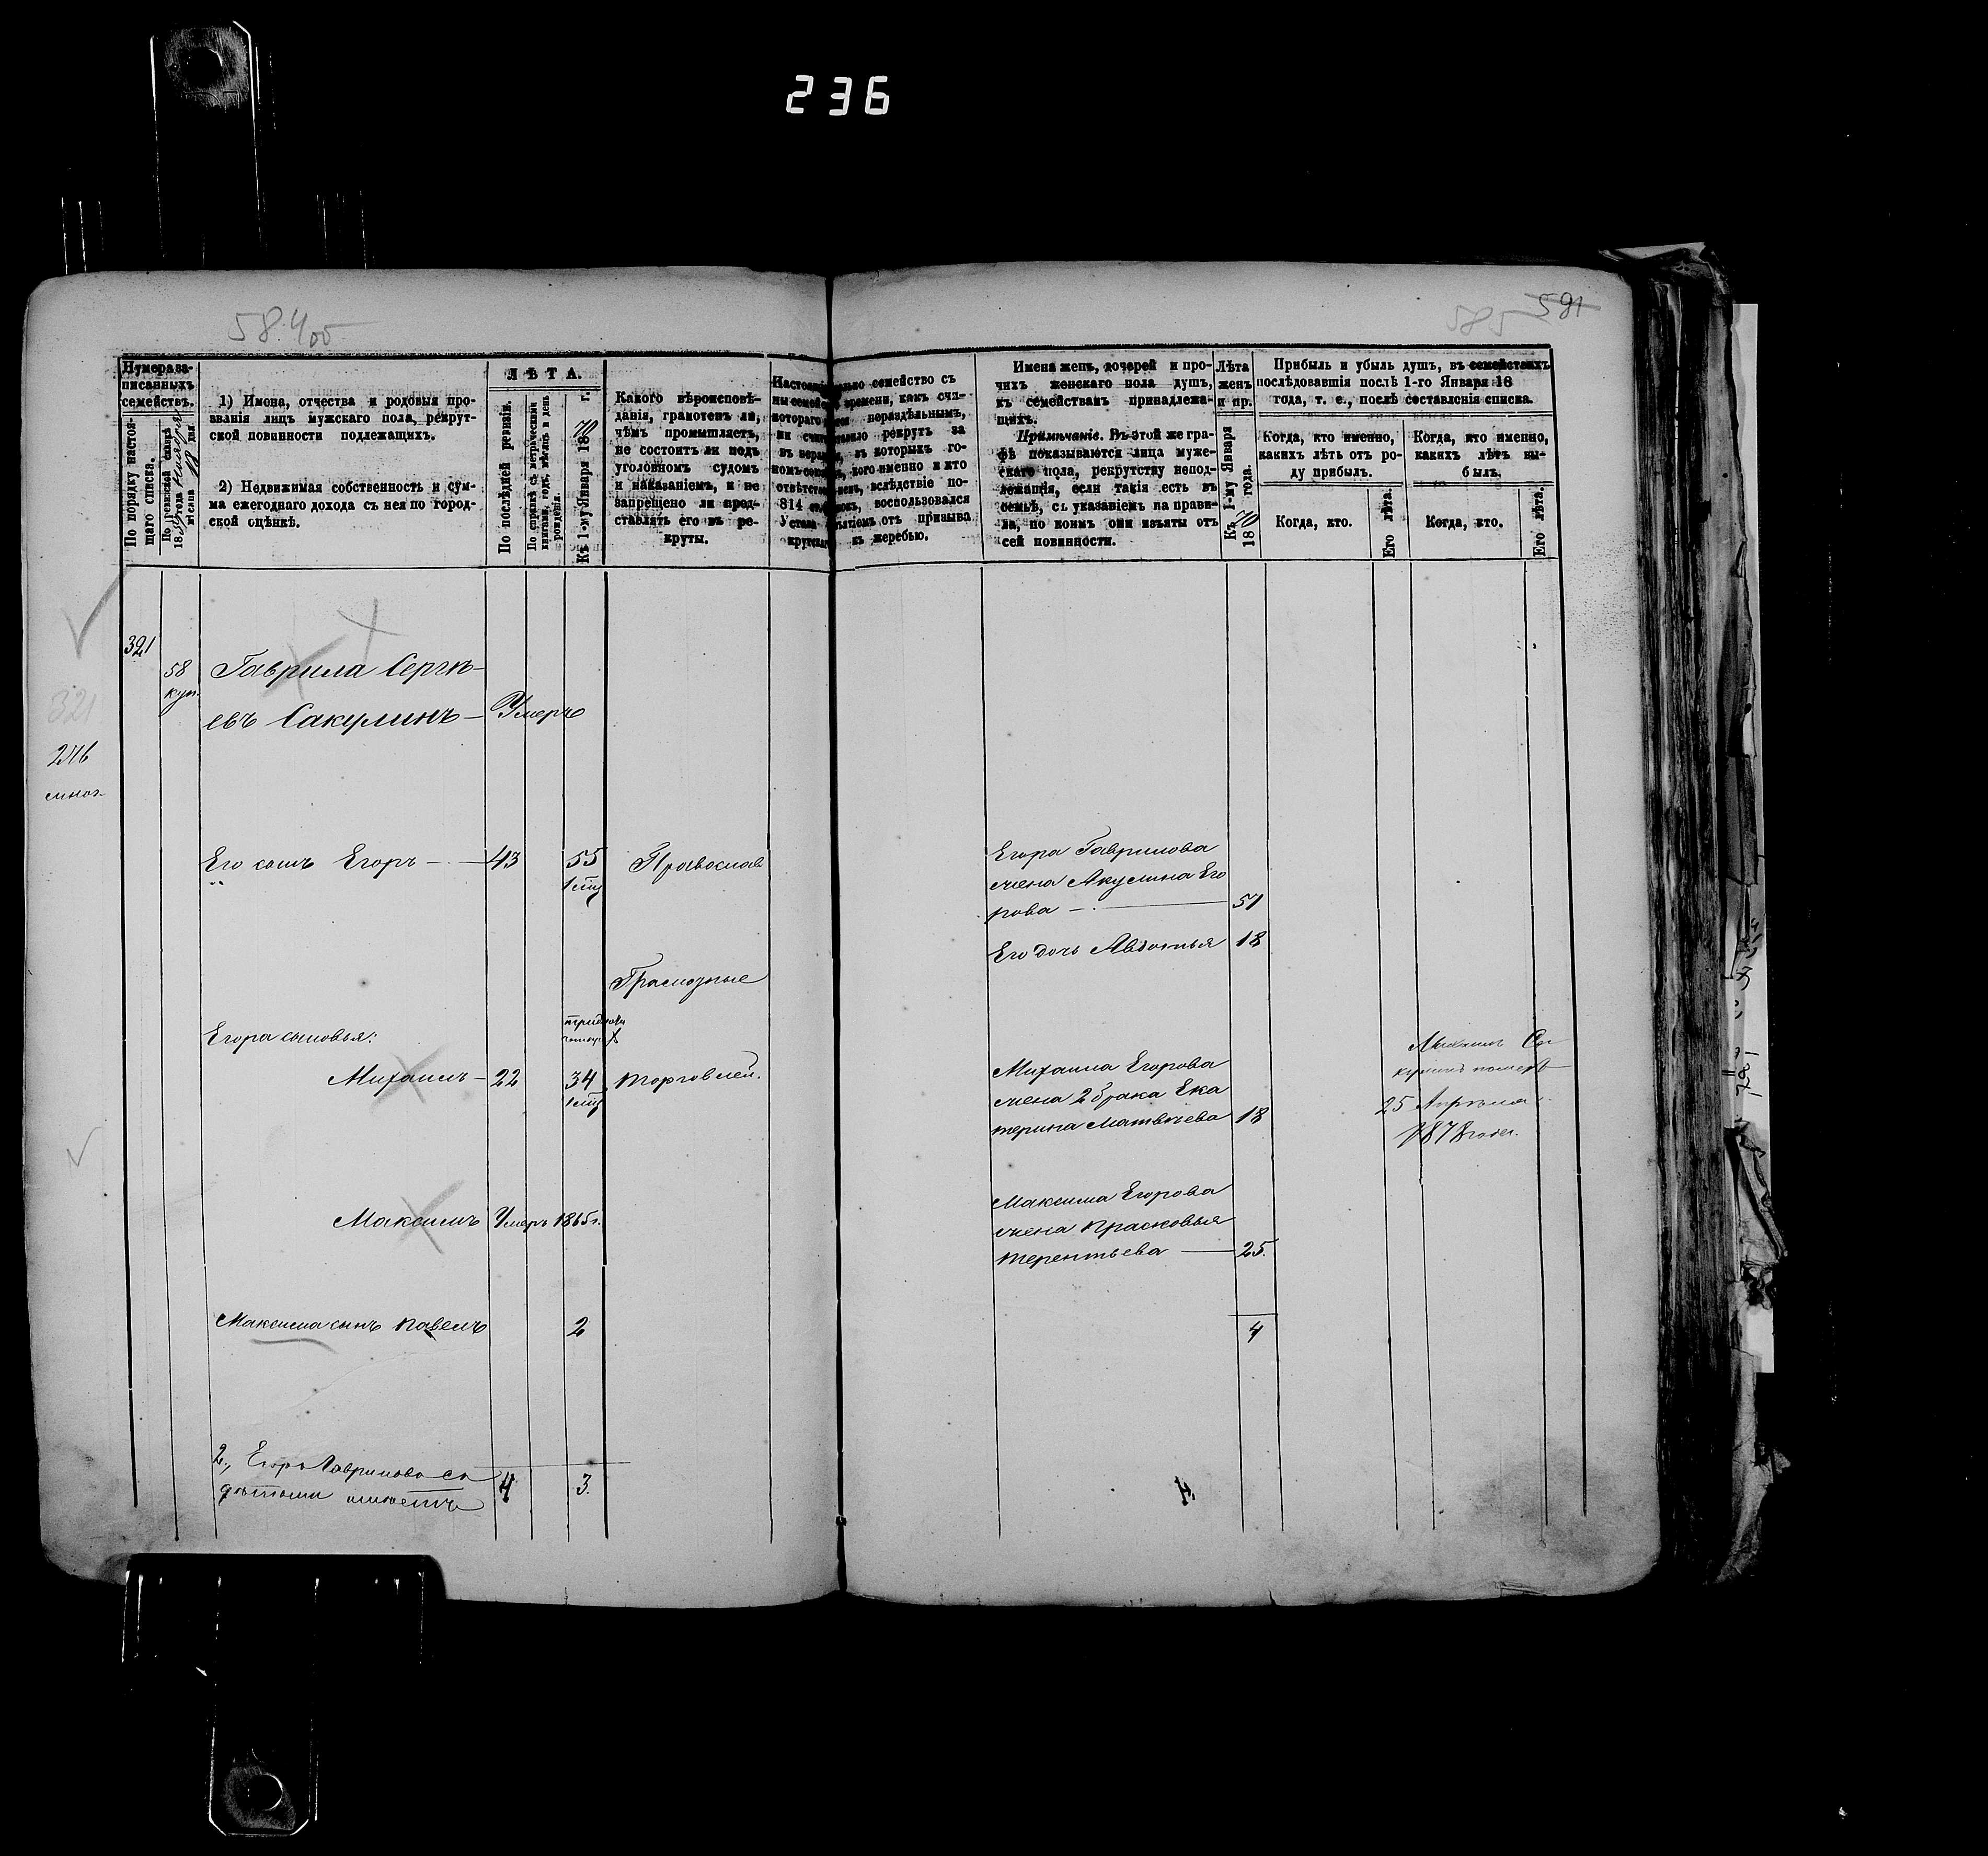 236
58.4 об
585 591
Нумера за-
писанныхъ
семействъ.
По порядку настоя-
щаго списка.
По ревизской сказкѣ
1) Имена, отчества и родовыя про-
званія лицъ мужскаго пола, рекрут-
ской повинности подлежащихъ.
2) Недвижимая собственность и сум-
ма ежегоднаго дохода съ нея по город-
ской оцѣнкѣ.
ЛѢТА.
По послѣдней ревизіи.
По справкѣ съ метрическими
книгами, годъ, мѣсяцъ и день
рожденія.
Къ 1-му Января 1870 г.
Какого вѣроисповѣ-
данія, грамотенъ ли,
чѣмъ промышляетъ,
не состоитъ ли подъ
уголовнымъ судомъ
и наказаніемъ, и не
запрещено ли пред-
ставлять его въ ре-
круты.
семейство съ
времени, какъ счи-
нераздѣльнымъ,
рекрутъ за
въ которыхъ го-
кого именно и кто
вслѣдствіе по-
814 воспользовался
Устава отъ призыва
къ жеребью.
Имена женъ, дочерей и про-
чихъ женскаго пола душъ,
къ семействамъ принадлежа-
щихъ.
Примѣчаніе. Въ этой же гра-
фѣ показываются лица муже-
скаго пола, рекрутству непод-
лежащія, если такія есть въ
семьѣ, съ указаніемъ на прави-
ла, по коимъ они изъяты отъ
сей повинности.
Лѣта
женъ
и пр.
Къ 1-му Января
1870 года.
Прибыль и убыль душъ, въ семействахъ
послѣдовавшія послѣ 1-го Января 18
года, т. е., послѣ составленія списка.
Когда, кто именно,
какихъ лѣтъ отъ ро-
ду прибылъ.
Когда, кто.
Его лѣта.
Когда, кто именно,
какихъ лѣтъ вы-
былъ.
Когда, кто.
Его лѣта.
321
58
куп.
321
246
Гаврила Сергѣ-
евъ Сакулинъ — Умеръ
Его сынъ Егоръ — 43 55 Православ
Егора Гаврилова
жена Акулина Его
рова — 51
Его дочь Авдотья 18
Грамотные
Егора сыновья:
Михаилъ — 22 34 торговлей.
Михаила Егорова
жена 2 брака Ека
терина Матвѣева 18
25 Апрѣля
1878 года.
Максимъ Умеръ 1865 г.
Максима Егорова
жена Прасковья
Терентьева — 25.
Максима сынъ Павелъ 2
4
2., Егоръ Гавриловъ съ
дѣтьми 4 3.